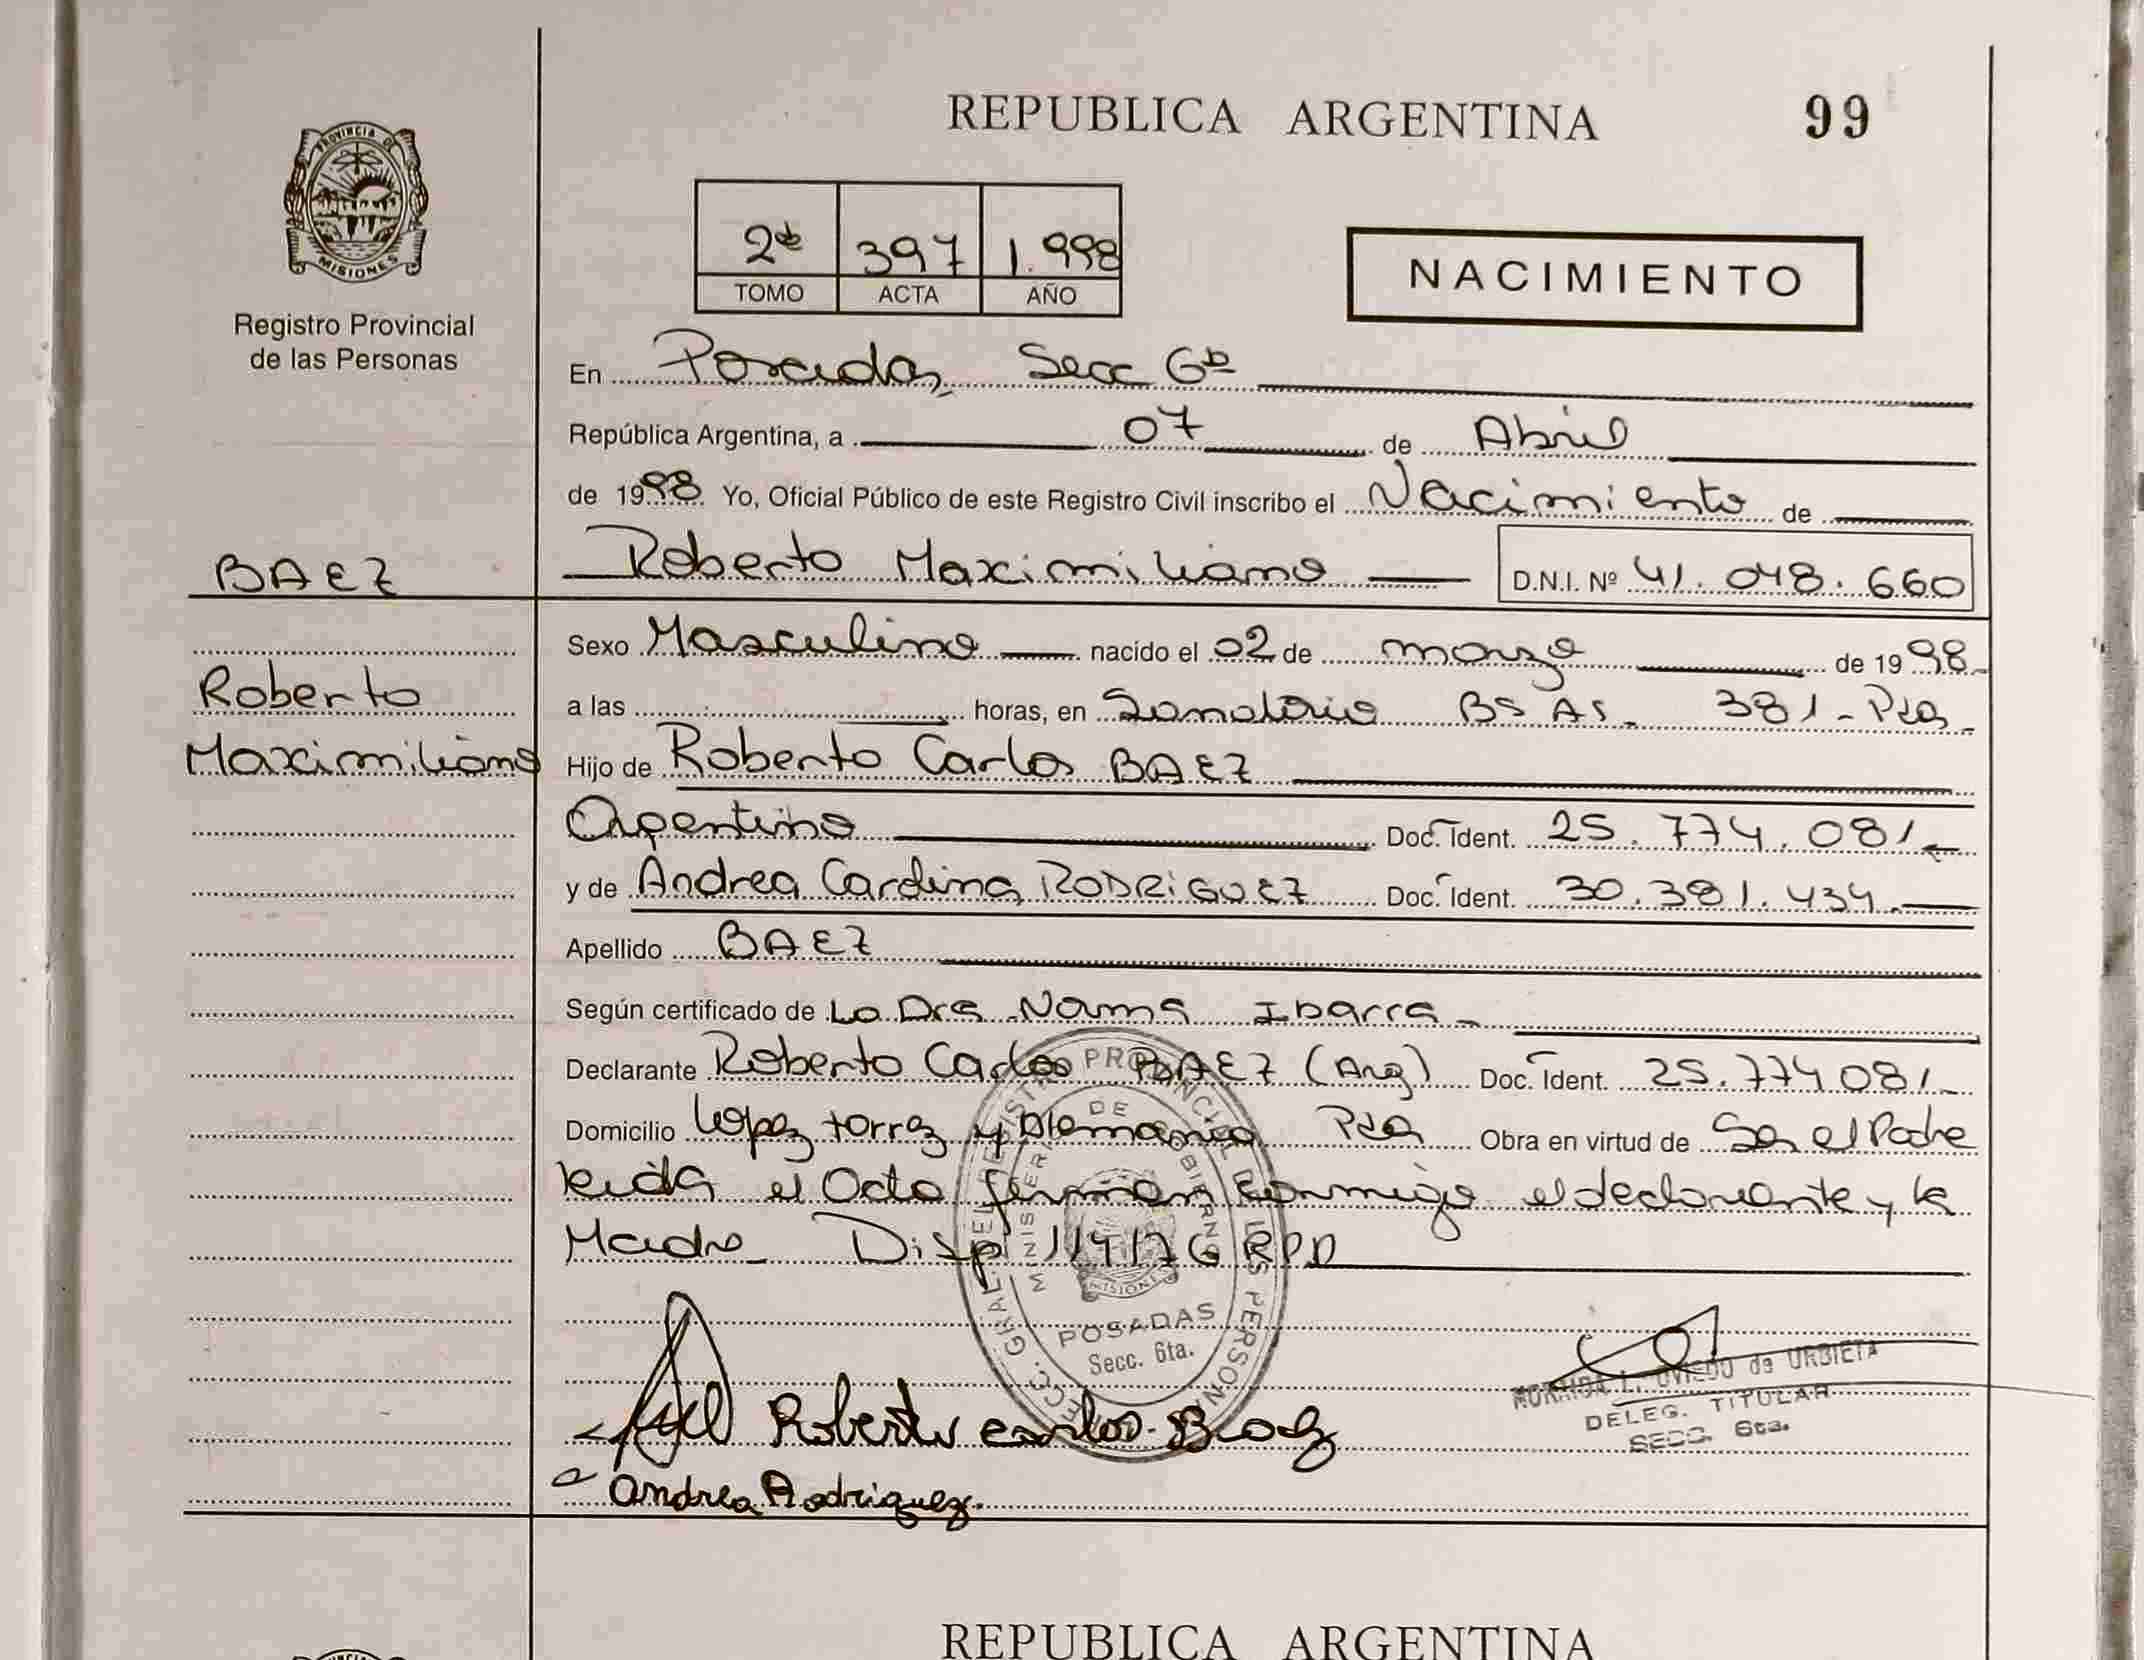 REPUBLICA ARGENTINA
99
PROVINCIA DE
MISIONES
Registro Provincial
de las Personas
2ᵈᵒ 397 1.998
TOMO ACTA AÑO
NACIMIENTO
En Posadas, Secc 6ᵗᵃ
República Argentina, a 07 de Abril
de 1998 Yo, Oficial Público de este Registro Civil inscribo el Nacimiento de
BAEZ
Roberto Maximiliano D.N.I. Nº 41.048.660
Sexo Masculino nacido el 02 de marzo de 1998
Roberto
Maximiliano
a las horas, en Sanatorio BS AS. 381 - Pdas
Hijo de Roberto Carlos BAEZ
Argentino Doc. Ident. 25.774.081
y de Andrea Carolina RODRIGUEZ Doc. Ident. 30.391.434
Apellido BAEZ
Según certificado de La Dra Ibarra
Declarante Roberto Carlos BAEZ (Arg) Doc. Ident. 25.774081
Domicilio Lopez torrez y Alemania Pdas Obra en virtud de Ser el Padre
Leida el Acta firman conmigo el declarante y la
Madre Disp 114/76 RPP
MINISTERIO DE GOBIERNO
MISIONES
POSADAS
Secc. 6ta.
L. OVIEDO de URBIETA
DELEG. TITULAR
SECC. 6ta.
Roberto carlos Baez
Andrea Rodriguez.
REPUBLICA ARGENTINA